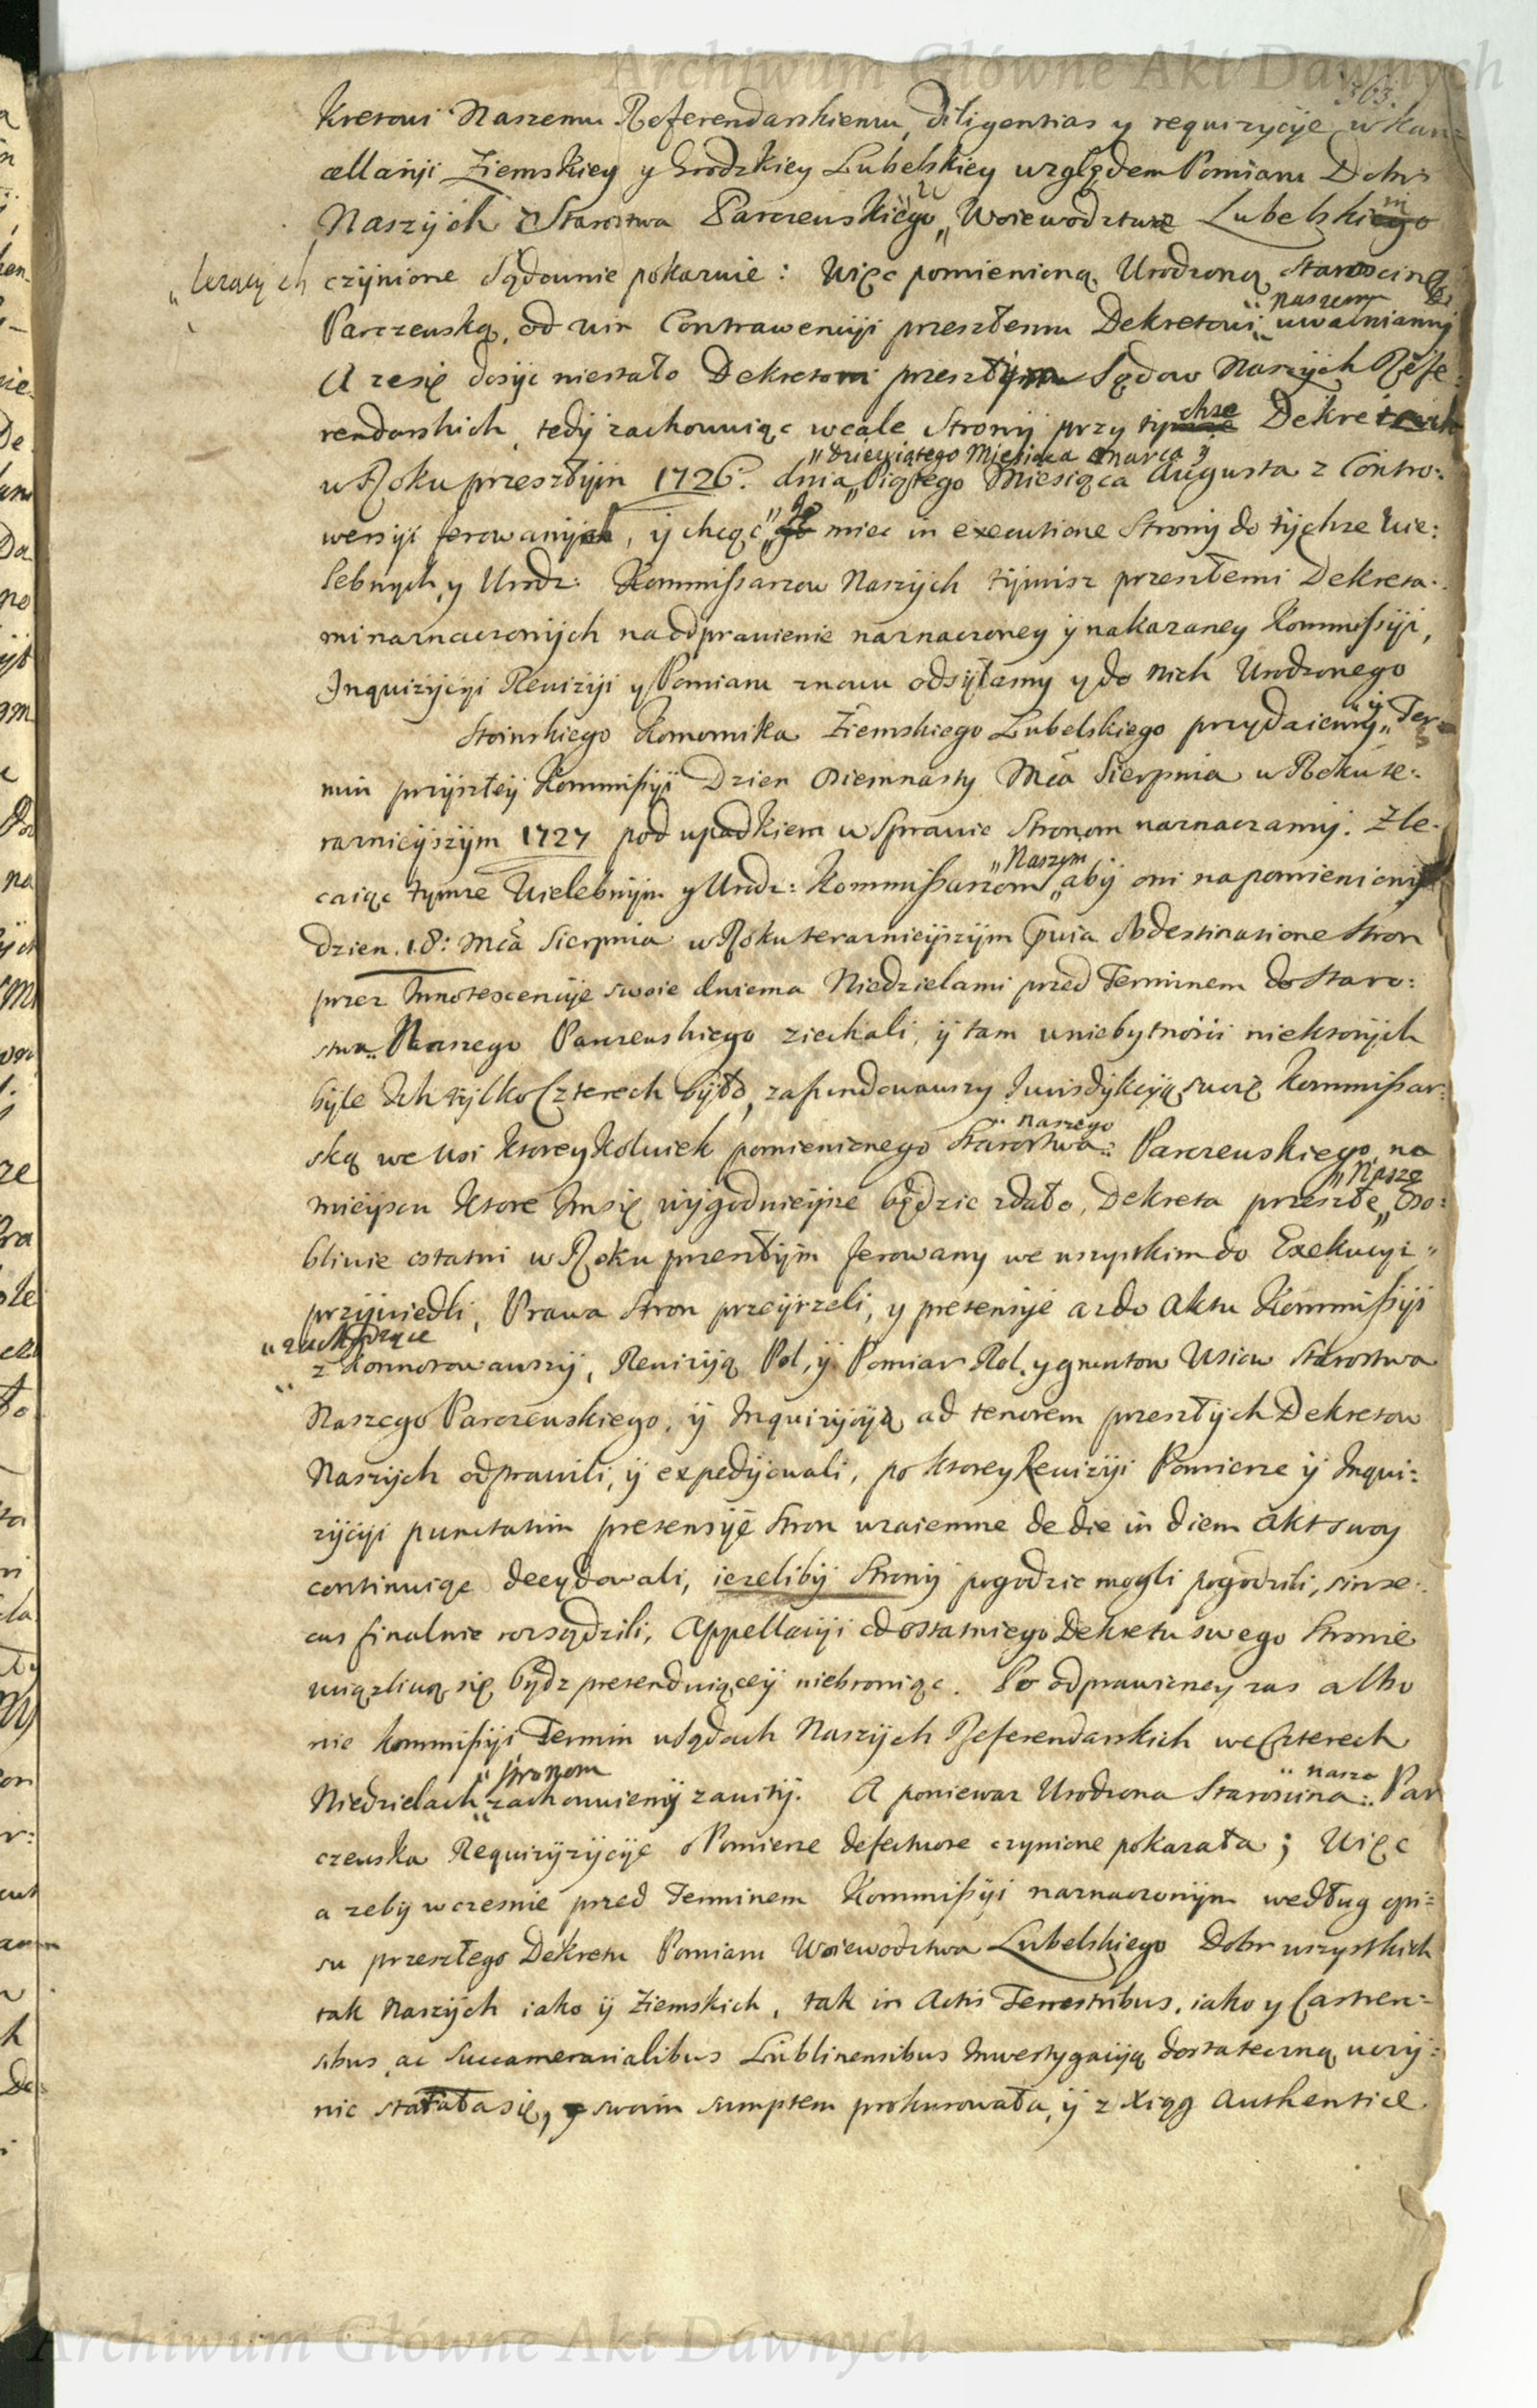 Archiwum Główne Akt Dawnych
363.
kretowi Naszemu Referendarskiemu, diligentias y requizycye w Kan=
cellaryi Ziemskiey y Grodzkiey Lubelskiey względem Pomiaru Dobr
Naszych Starostwa Parczewskiego „ Woiewodztwie Lubelskiego
„ lezących czynione Sądownie pokazuie: Więc pomienioną Urodzoną Starościnę
„ naszemu
Parczewską, od win Contrawencyi przeszłemu Dekretowi uwalniamy
A zesię dosyc niestało Dekretowi przeszłym Sądow Naszych Refe:
rendarskich, tedy zachowuiąc wcale Strony przy tymze Dekretach
chze
„ dziewiątego Miesiąca Marca y
w Roku przeszłym 1726. dnia „ Piątego Miesiąca Augusta z Contro:
wersyi ferowanych, y chcąc „ go miec in executione Strony do tychze Wie:
lebnych y Urodz: Kommissarzow Naszych tymisz przeszłemi Dekreta:
mi naznaczonych na odprawienie naznaczoney y nakazaney Kommissyi,
Inquizycyi Rewizyi y Pomiaru znowu odsyłamy y do nich Urodzonego
Stoinskiego Komornika Ziemskiego Lubelskiego przydaiemy „ y Ter=
min przyszłey Kommissyi Dzien Osiemnasty Mca Sierpnia w Roku te:
raznieyszym 1727 pod upadkiem w Sprawie Stronom naznaczamy. Zle:
„ Naszym
caiąc tymze Wielebnym y Urodz: Kommissarzom „ aby oni na pomieniony
dzien 18: Mca Sierpnia w Roku teraznieyszym ob destinatione Stron
przez Innotescencye swoie dwiema Niedzielami przed Terminem do Staro:
stwa Naszego Parczewskiego ziechali, y tam wniebytności niektorych
byle Ich tylko Czterech było, zafundowawszy Jurisdykcyą swoię Kommissar:
„ naszego
ską we Wsi ktoreykolwiek pomienionego Starostwa „ Parczewskiego, na
„ Nasze
mieyscu ktore Imsię wygodnieysze będzie zdało, Dekreta przeszłe „ Oso:
bliwie ostatni w Roku przeszłym ferowany we wszystkim do Exekucyi
przywiedli, Prawa Stron przeyrzeli, y pretensye az do Aktu Kommissyi
„ zachodzące
z konnotowawszy, Rewizyą Pol, y Pomiar Rol y gruntow Wsiow Starostwa
Naszego Parczewskiego, y Inquizycyą ad tenorem przeszłych Dekretow
Naszych odprawili, y expedyowali, po ktorey Rewizyi Pomierze y Inqui:
zycyi punctatim pretensye Stron wzaiemne de die in diem Akt swoy
continuiąc decydowali, iezeliby Strony pogodzic mogli pogodzili, sin se:
cus finalnie rozsądzili, Appellacyi od ostatniego Dekretu swego Stronie
uciązliwą się bydz pretenduiącey niebroniąc. Po odprawioney zas albo
nie Kommissyi Termin w Sądach Naszych Referendarskich we Czterech
„ stronom
„ nasza
Niedzielach zachowuiemy zawity. A poniewaz Urodzona Starościna „ Par
czewska Requizyzycye o Pomierze defectuose czynione pokazała; Więc
a zeby wczesnie przed Terminem Kommissyi naznaczonym według opi=
su przeszłego Dekretu Pomiaru Woiewodztwa Lubelskiego Dobr wszystkich
tak Naszych iako y Ziemskich, tak in Actis Terrestribus, iako y Castren=
sibus ac Succamerarialibus Lublinensibus Inwestygacyą dostateczną uczy:
nic starałasię, y swoim sumptem prokurowała, y z Xiąg Authentice
Archiwum Główne Akt Dawnych